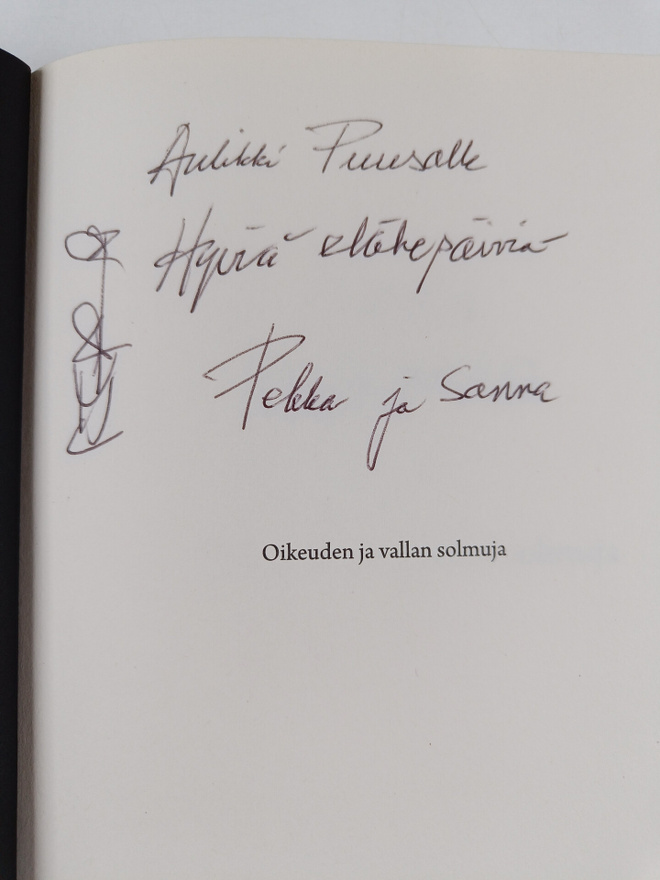 Aulikki Puusalle
Hyviä eläkepäiviä
Pekka ja Sanna
Oikeuden ja vallan solmuja